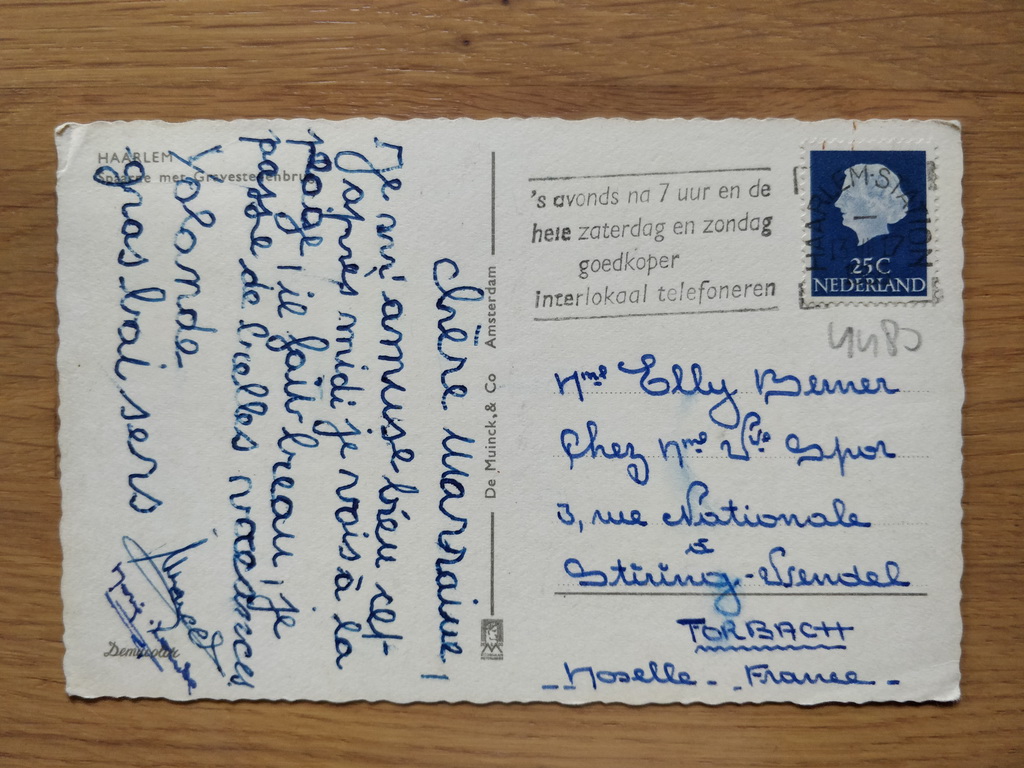 HAARLEM
Spaarne met Gravestenenbrug
Chère Marraine!
Je m'amuse bien cet
après midi je vais à la
plage, il fait beau, je
passe de belles vacances
Yolande
gros baisers
Demicolor
De Muinck & Co Amsterdam
's avonds na 7 uur en de
hele zaterdag en zondag
goedkoper
interlokaal telefoneren
HAARLEM-STATION
25C
NEDERLAND
Mme Elly Berner
Chez Mme Vve Spor
3, rue Nationale
Stiring-Wendel
FORBACH
- Moselle - - France -